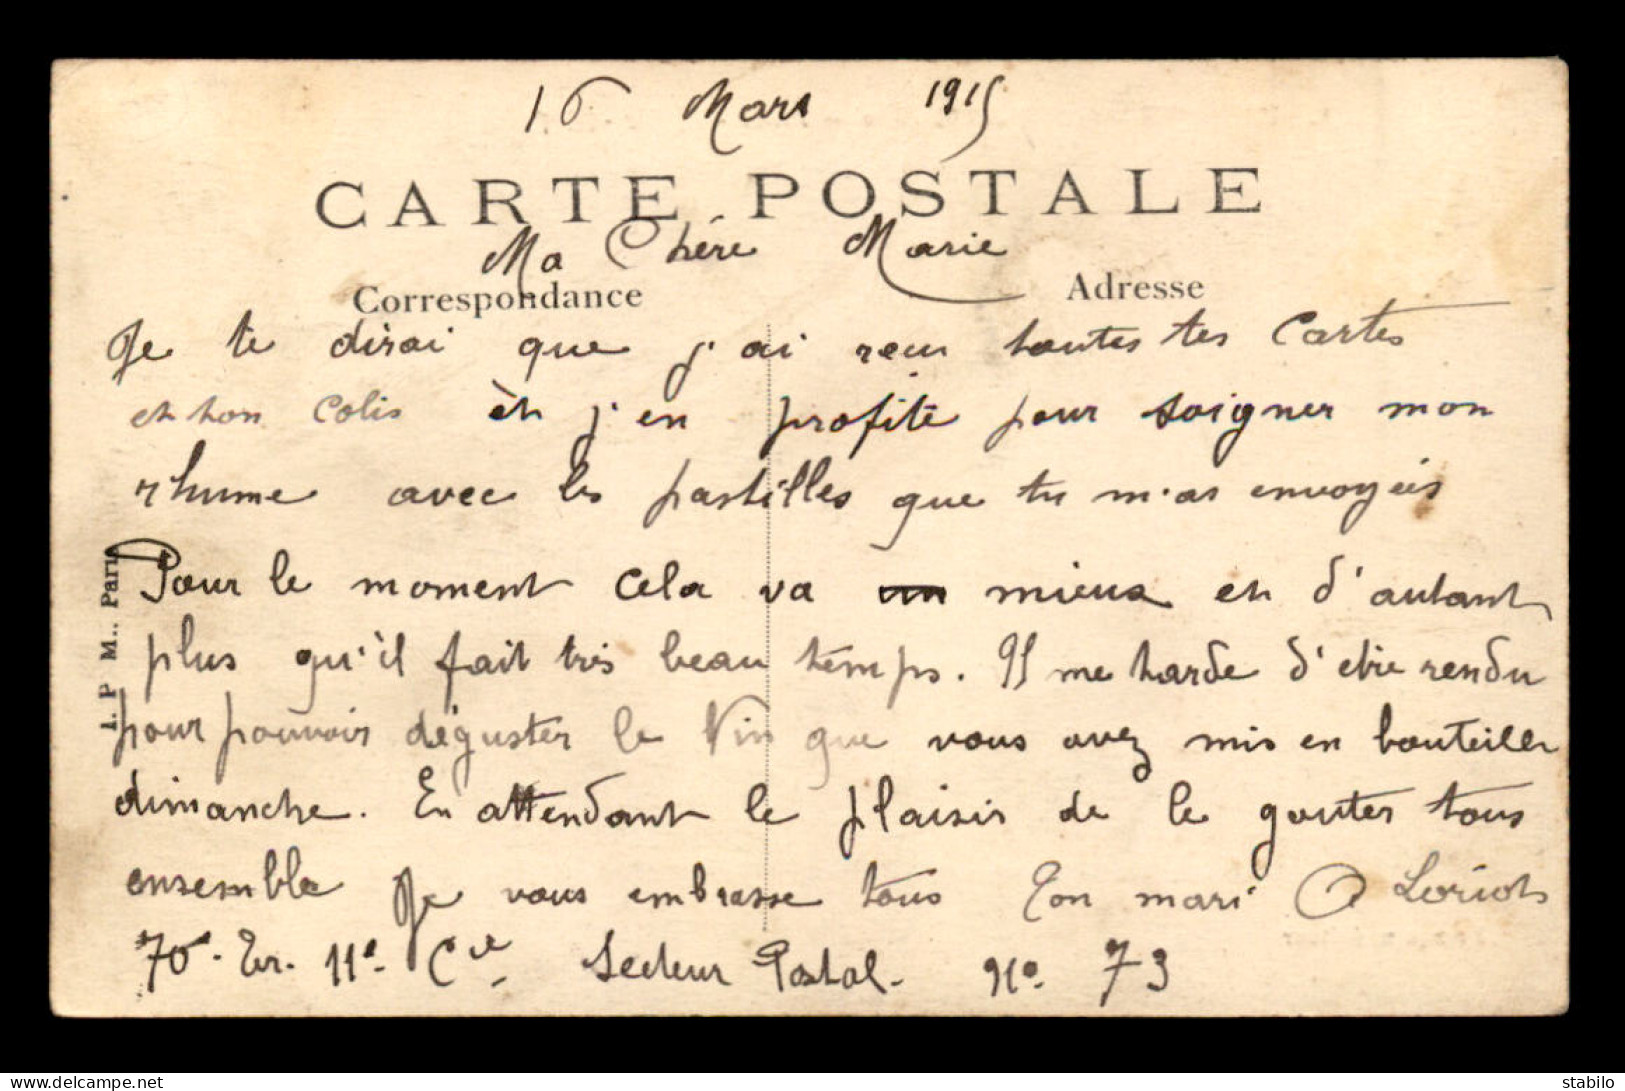 16 Mars 1915
CARTE POSTALE
Ma Chére Marie
Correspondance
Adresse
Je te dirai que j'ai recu toutes tes Cartes
et ton Colis èt j'en profite pour soigner mon
rhume avec les pastilles que tu m'as envoyeés
Pour le moment cela va mieux et d'autant
plus qu'il fait très beau temps. Il me tarde d'etre rendu
pour pouvoir déguster le Vin que vous avez mis en bouteilles
dimanche. En attendant le plaisir de le gouter tous
ensemble Je vous embrasse tous Ton mari Loriot
70e. Ter. 11e. Cie. Secteur Postal. No. 73
I. P M.. Paris
www.delcampe.net
stabilo